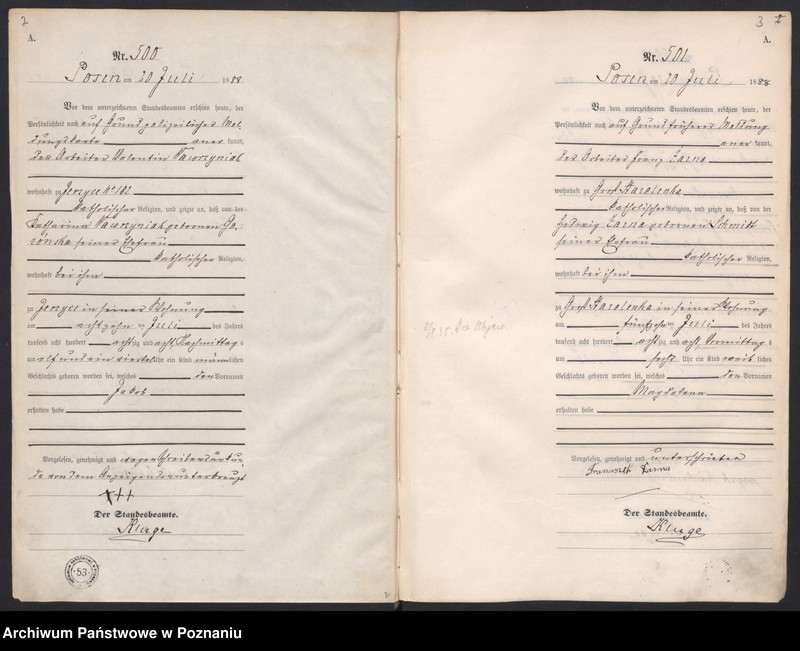 2
A.
Nr. 500
Posen am 20 Juli 1888
Vor dem unterzeichneten Standesbeamten erschien heute, der
Persönlichkeit nach auf Grund polizeilicher Mel-
dungskarte anerkannt,
der Arbeiter Valentin Tawrzyniak
wohnhaft zu Jerzyce No 102
katholischer Religion, und zeigte an, daß von der
Katharina Tawrzyniak geborenen
seiner Ehefrau
katholischer Religion,
wohnhaft bei ihm
zu Jerzyce in seiner Wohnung
am achtzehn ten Juli des Jahres
tausend acht hundert achtzig und acht Nachmittag s
um elf und ein viertel Uhr ein Kind männlichen
Geschlechts geboren worden sei, welches den Vornamen
Jakob
erhalten habe
Vorgelesen, genehmigt und wegen Schreibensunkun-
de von dem Anzeigenden unterkreuzt
+++
Der Standesbeamte.
Kluge
53
3 2
A.
Nr. 501
Posen am 20 Juli 1888
Vor dem unterzeichneten Standesbeamten erschien heute, der
Persönlichkeit nach auf Grund früherer Meldung
anerkannt,
der Arbeiter Franz Zarna
wohnhaft zu Groß Starolenka
katholischer Religion, und zeigte an, daß von der
Hedwig Zarna geborenen Schmidt
seiner Ehefrau
katholischer Religion,
wohnhaft bei ihm
zu Groß Starolenka in seiner Wohnung
am fünfzehn ten Juli des Jahres
tausend acht hundert achtzig und acht Vormittag s
um sechs Uhr ein Kind weiblichen
Geschlechts geboren worden sei, welches den Vornamen
Magdalena
erhalten habe
Vorgelesen, genehmigt und unterschrieben
Franciszek Żarna
Der Standesbeamte.
Kluge
Archiwum Państwowe w Poznaniu